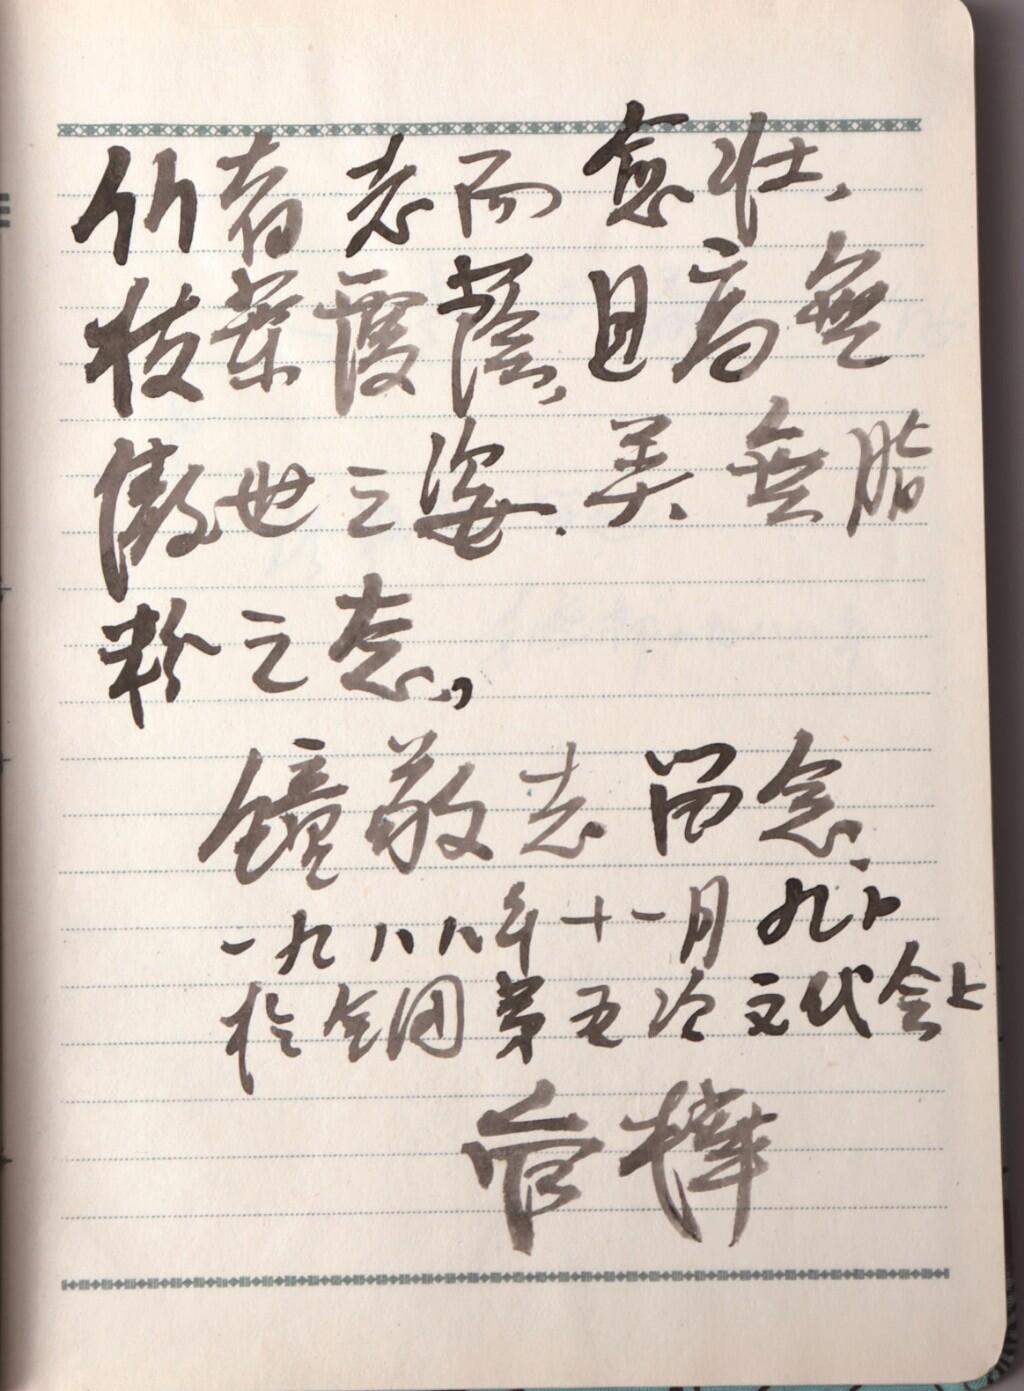 竹者老而愈壮，
枝叶覆荫，且高无
傲世之姿，美无脂
粉之态，
钟敬志留念。
一九八八年十一月九日
於全国第五次文代会上
管桦